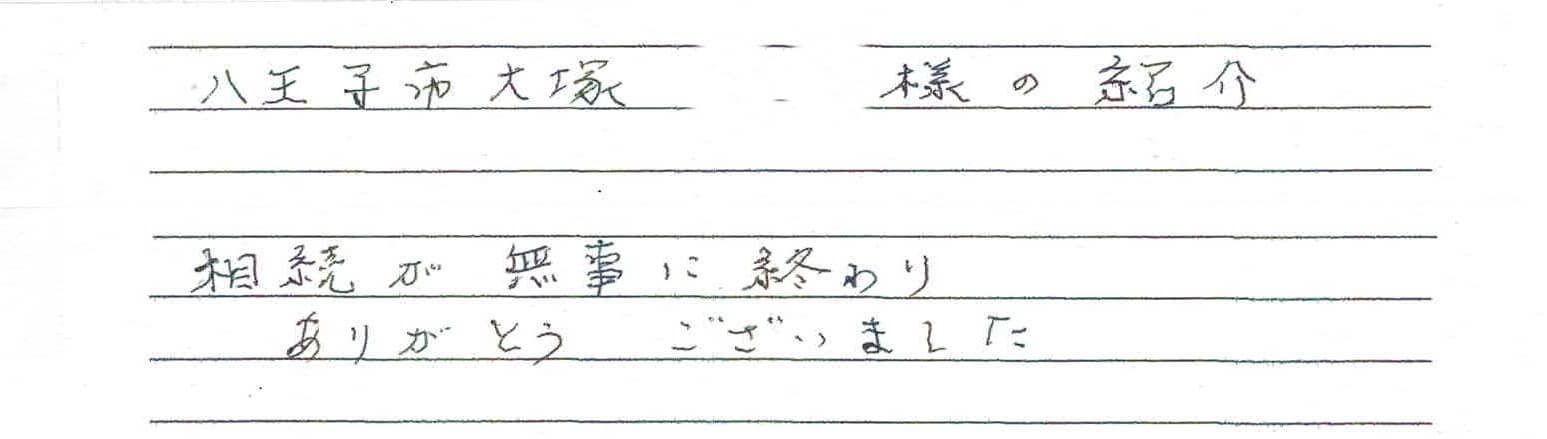 八王子市大塚 様の紹介
相続が無事に終わり
ありがとう ございました